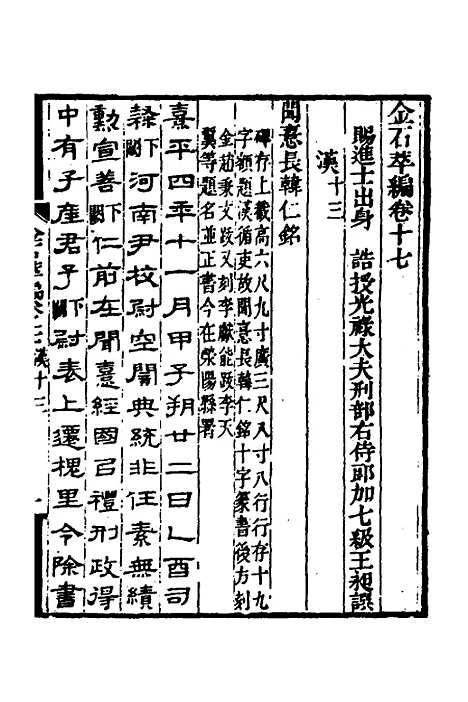 金石萃編卷十七
賜進士出身 誥授光祿大夫刑部右侍郎加七級王昶譔
漢十三
聞憙長韓仁銘
碑存上截高六尺九寸廣三尺八寸八行行存十九
字額題漢循吏故聞憙長韓仁銘十字篆書後方刻
金趙秉文跋又刻李獻能跋李天
翼等題名並正書今在滎陽縣署
熹平四年十一月甲子朔廿二日乙酉司
隸下闕河南尹校尉空闇典統非任素無績
勳宣善下闕仁前在聞憙經國以禮刑政得
中有子產君子下闕尉表上遷槐里令除書